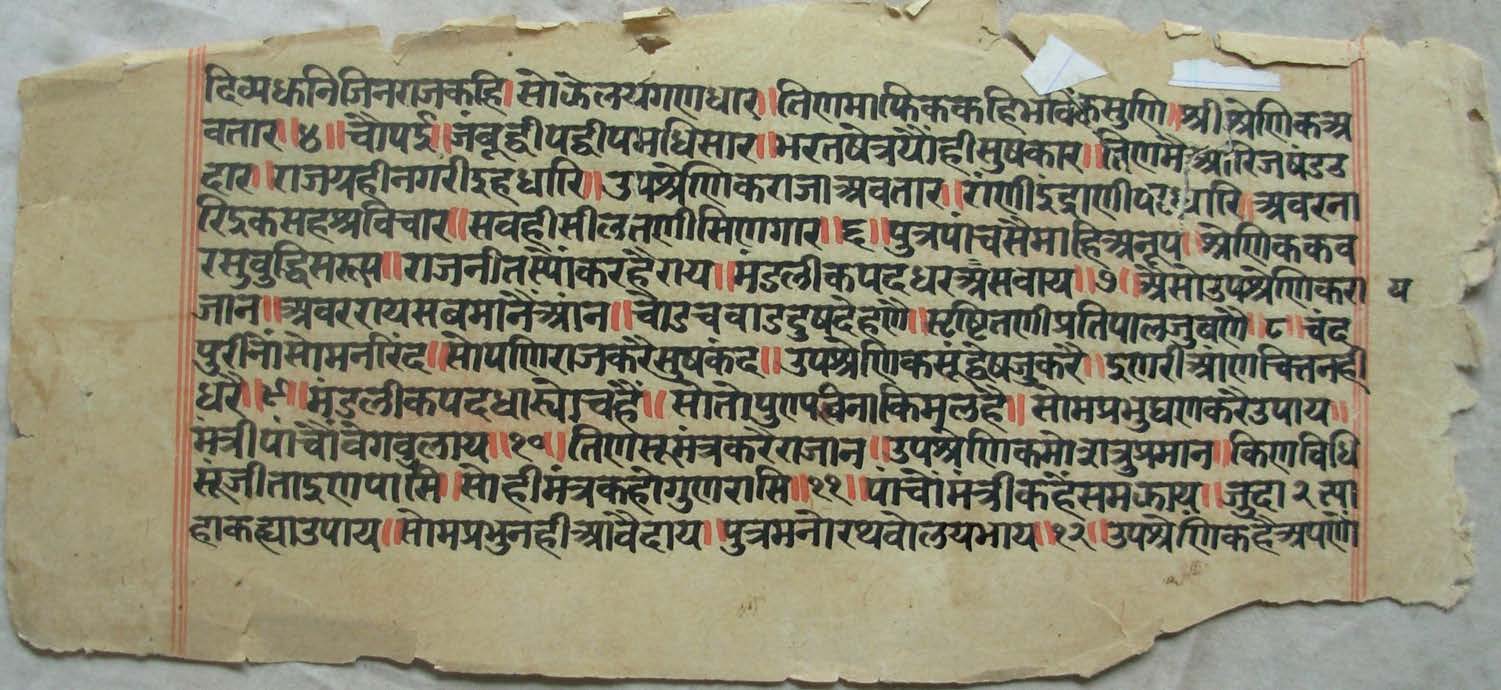 दिव्यध्वनिजिनराजकहि॥सोऊलयगणधार॥तिणमाफिककहिभविकसुणि॥श्रीश्रेणिकअ
वतार॥४॥चौपई॥जंबूद्वीपद्वीपमधिसार॥भरतषेत्रयौंहीसुषकार॥तिणमै
दार॥राजग्रहीनगरीइहधारि॥उपश्रेणिकराजाअवतार॥रांणीइंद्राणी अवरना
रिइकसहश्रविचार॥सबहीसीलतणीसिणगार॥६॥पुत्रपांचसैमाहिअनूप॥श्रेणिककव
रसुबुद्धिसरूस॥राजनीतस्यांकरहैराय॥मंडलीकपदधरअसवाय॥७॥अैसोउपश्रेणिकरा य
जान॥अवररायसबमांनैआंन॥चाडचवाडदुषदेहणै॥सृष्टितणीप्रतिपालजुवणै॥८॥चंद
पुरीनांसोमनरिंद॥सोपणिराजकरैसुषकंद॥उपश्रेणिकसूंद्वेषजुकरै॥इणरीआणचित्तनही
धरै॥९॥मंडलीकपदधास्योचहै॥सोतोपुण्यविनाकिमलहै॥सोमप्रभुघणकरैउपाय॥
मंत्रीपांचौंवेगबुलाय॥१०॥तिणसूमंत्रकरेराजान॥उपश्रेणिकमोशत्रुप्रमान॥किणविधि
सूजीताइणपासि॥सोहीमंत्रकहोगुणरासि॥११॥पांचोमंत्रीकहैसमऊाय॥जुदा२स्या
हाकह्याउपाय॥सोमप्रभुनहीआवैदाय॥पुत्रमनोरथवोलयभाय॥१२॥उपश्रेणिकहैअपणै